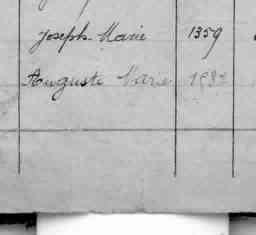 Joseph-Marie 1359
Auguste Marie